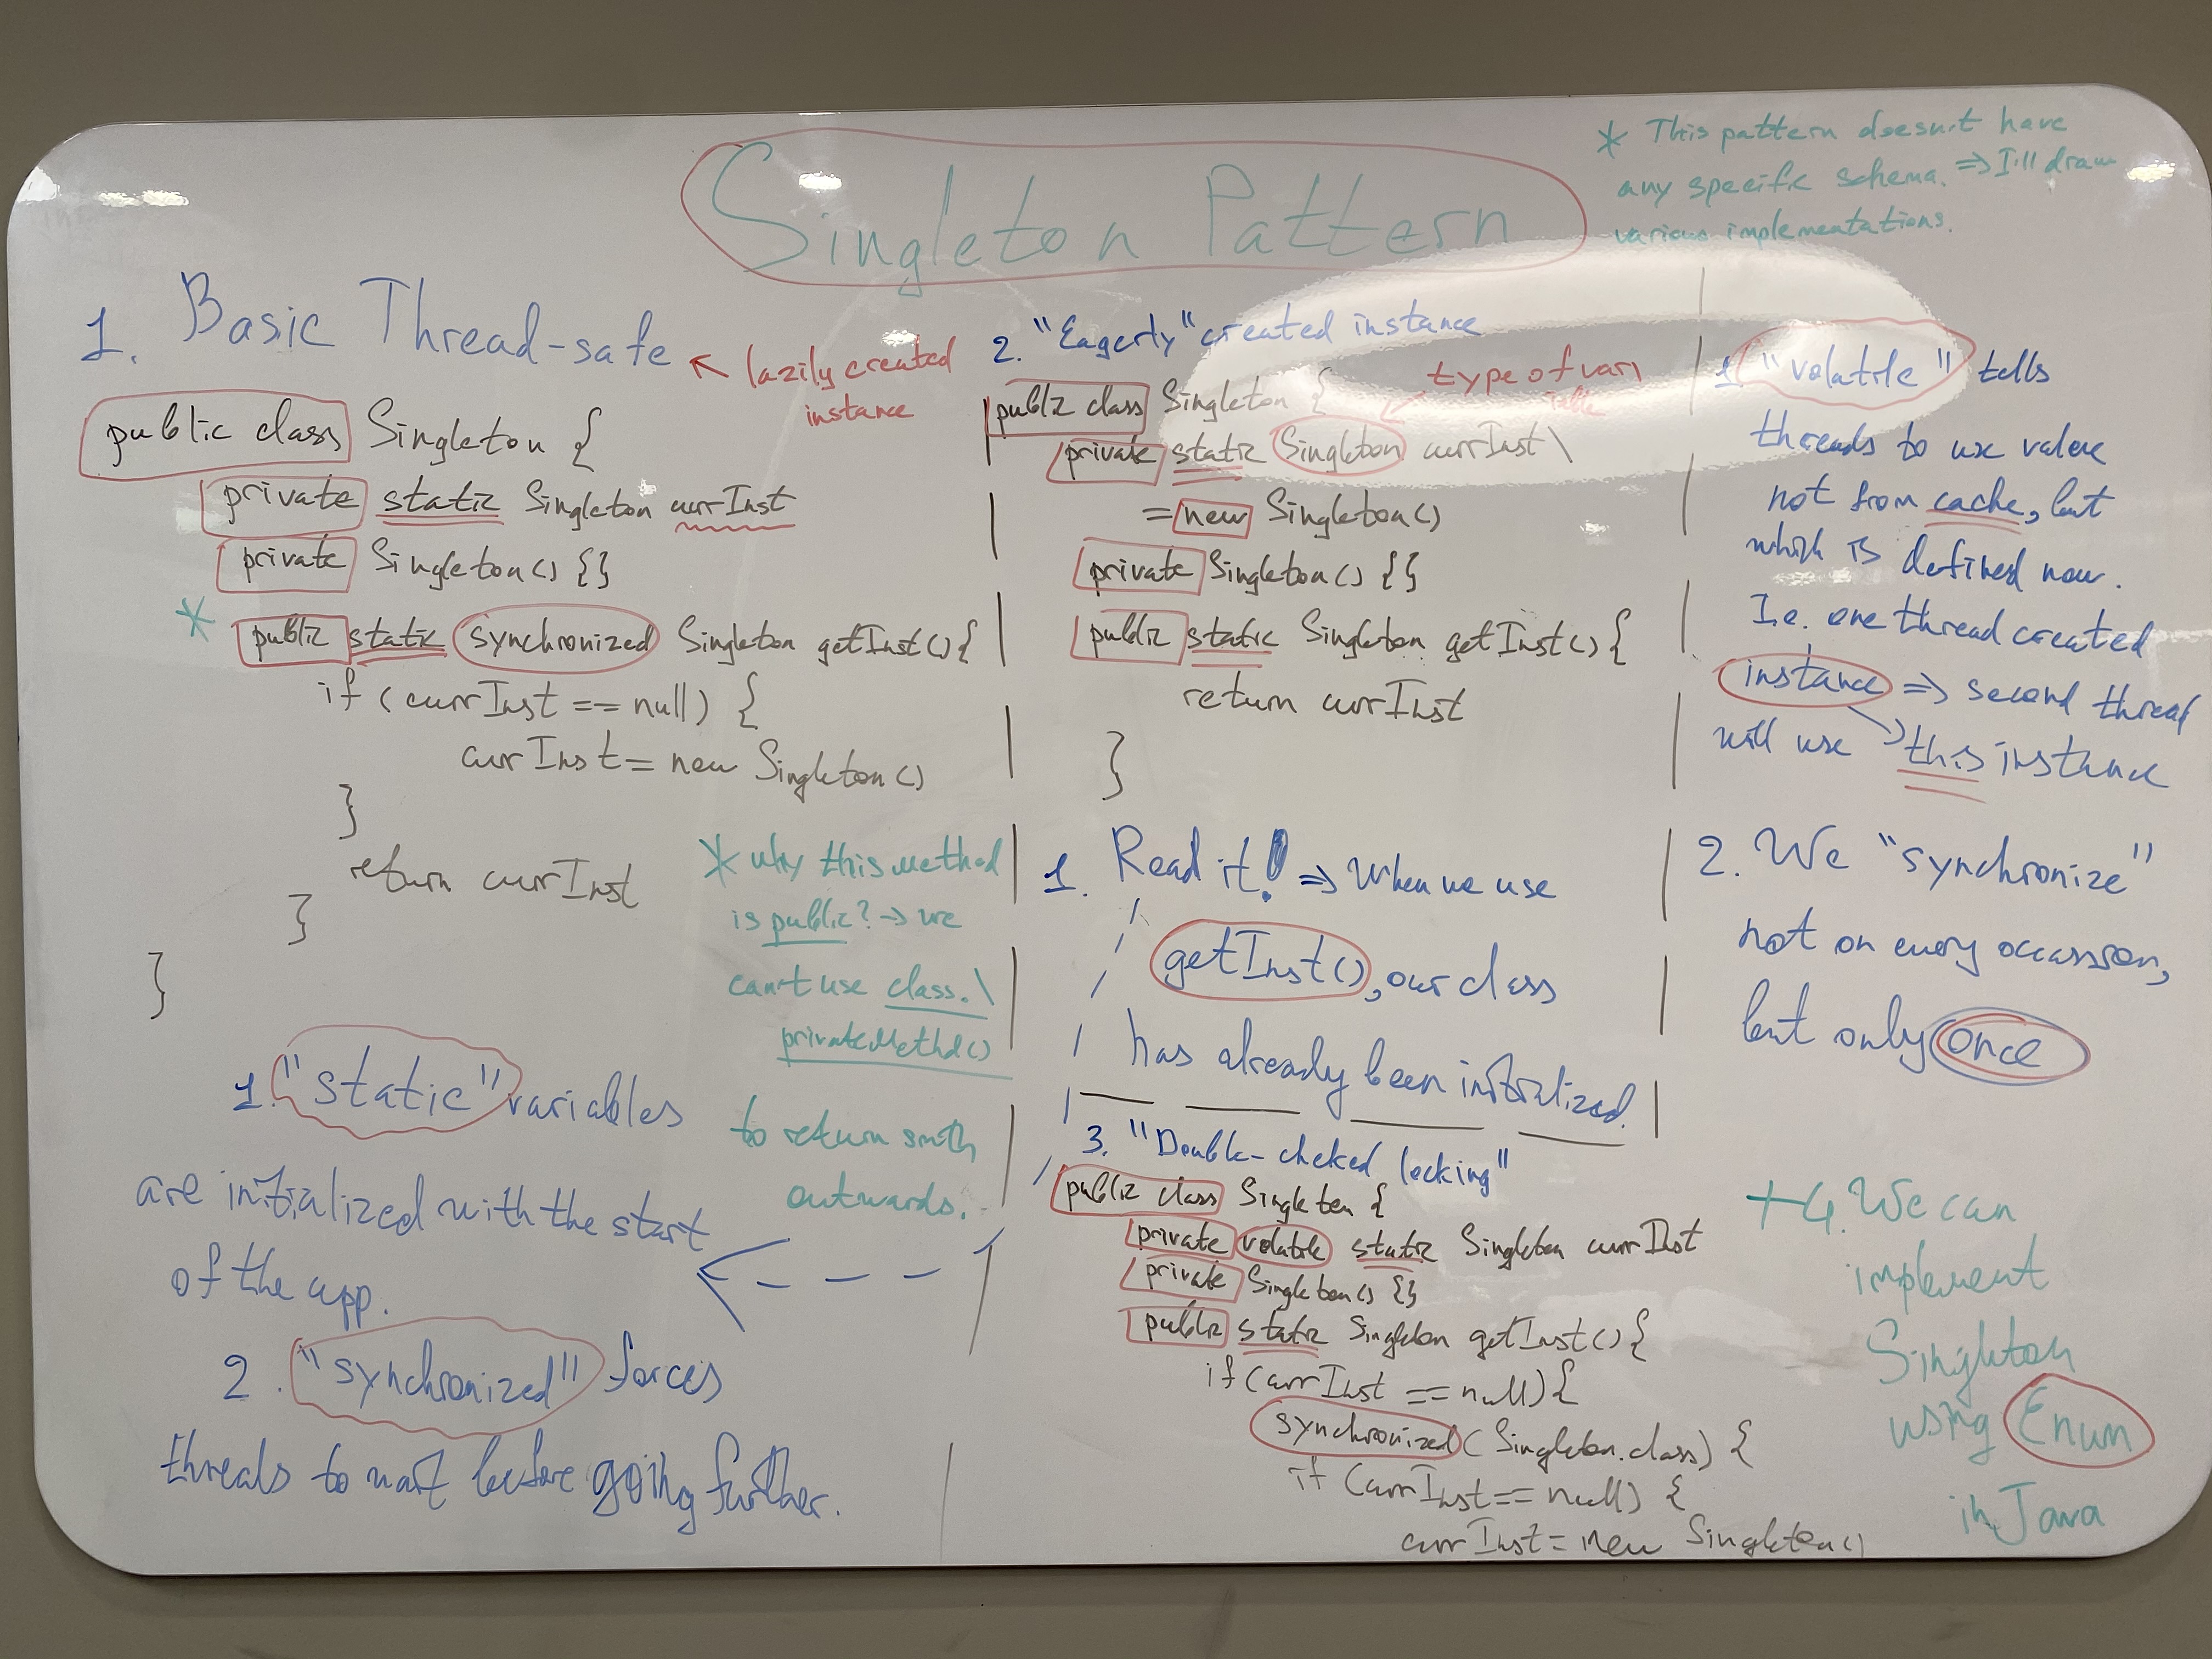 Singleton Pattern
* This pattern doesn't have
any specific schema. => I'll draw
various implementations.
1. Basic Thread-safe
lazily created
instance
public class Singleton {
private static Singleton currInst
private Singleton() {}
* public static synchronized Singleton getInst() {
if (currInst == null) {
currInst = new Singleton()
}
return currInst
}
}
* why this method
is public? -> we
can't use class.\
privateMethod()
to return smth
outwards.
1. "static" variables
are initialized with the start
of the app.
2. "synchronized" forces
threads to wait before going further.
2. "Eagerly" created instance
type of vari
able
public class Singleton {
private static Singleton currInst \
= new Singleton()
private Singleton() {}
public static Singleton getInst() {
return currInst
}
1. Read it! => When we use
getInst(), our class
has already been initialized.
3. "Double-cheked locking"
public class Singleton {
private volatile static Singleton currInst
private Singleton() {}
public static Singleton getInst() {
if (currInst == null) {
synchronized (Singleton.class) {
if (currInst == null) {
currInst = new Singleton()
1. "volatile" tells
threads to use value
not from cache, but
which is defined now.
I.e. one thread created
instance => second thread
will use this instance
2. We "synchronize"
not on every occassion,
but only once
+ 4. We can
implement
Singleton
using Enum
in Java